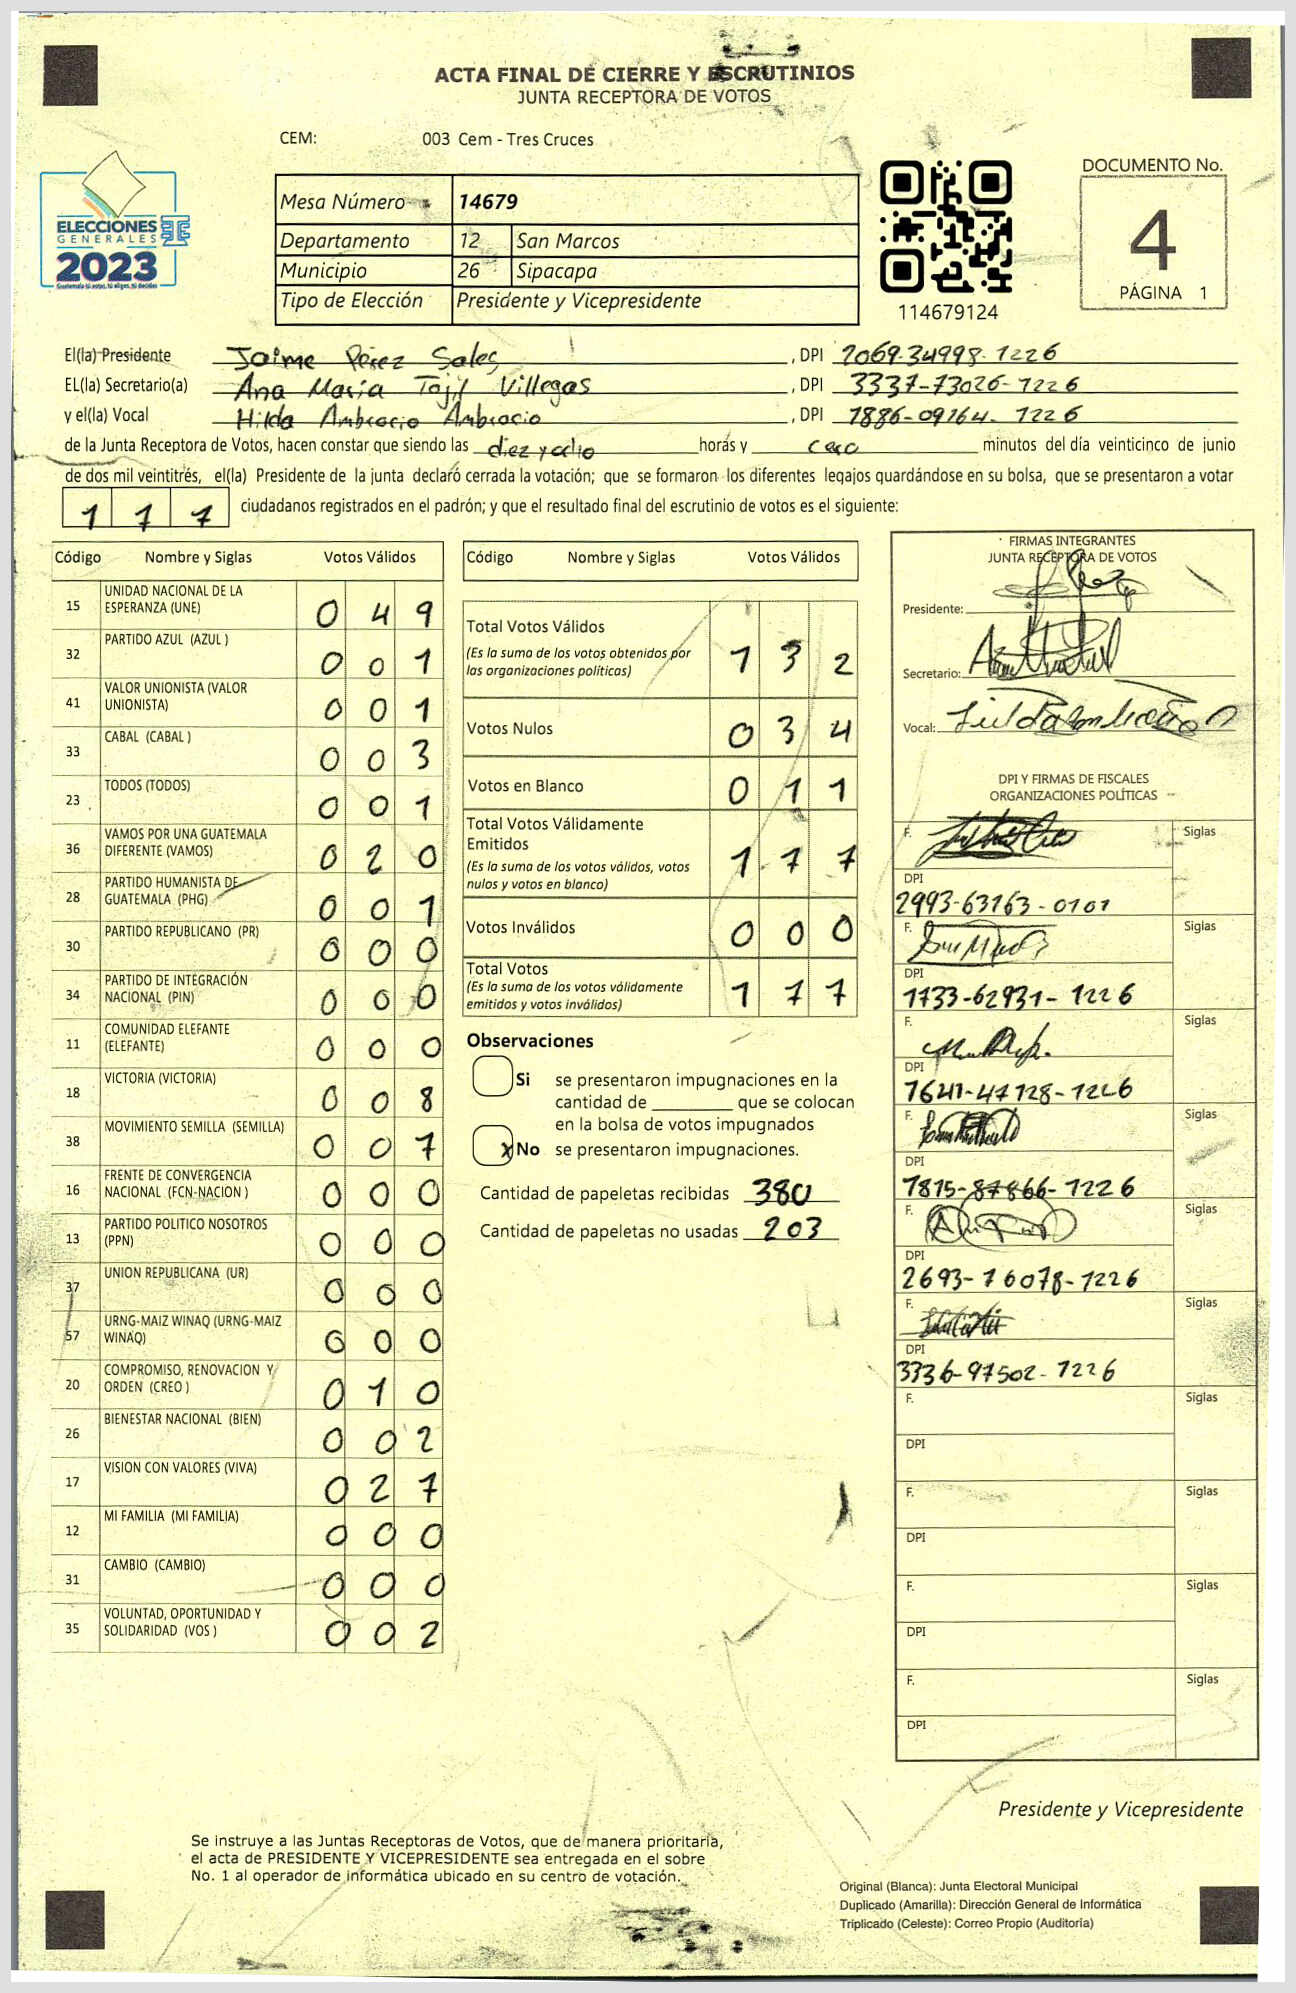 ACTA FINAL DE CIERRE Y ESCRUTINIOS
JUNTA RECEPTORA DE VOTOS
CEM: 003 Cem - Tres Cruces
ELECCIONES
GENERALES
2023
Guatemala tú votas, tú eliges, tú decides
Mesa Número 14679
Departamento 12 San Marcos
Municipio 26 Sipacapa
Tipo de Elección Presidente y Vicepresidente
114679124
DOCUMENTO No.
4
PÁGINA 1
El(la) Presidente Jaime Pérez Sales, DPI 2069-34998-1226
EL(la) Secretario(a) Ana María Tojil Villegas, DPI 3337-73026-1226
y el(la) Vocal Hilda Ambrocio Ambrocio, DPI 1886-09164-1226
de la Junta Receptora de Votos, hacen constar que siendo las diez y ocho horas y cero minutos del día veinticinco de junio
de dos mil veintitrés, el(la) Presidente de la junta declaró cerrada la votación; que se formaron los diferentes legajos guardándose en su bolsa, que se presentaron a votar
177 ciudadanos registrados en el padrón; y que el resultado final del escrutinio de votos es el siguiente:
Código Nombre y Siglas Votos Válidos
15 UNIDAD NACIONAL DE LA
ESPERANZA (UNE) 049
32 PARTIDO AZUL (AZUL ) 001
41 VALOR UNIONISTA (VALOR
UNIONISTA) 001
33 CABAL (CABAL ) 003
23 TODOS (TODOS) 001
36 VAMOS POR UNA GUATEMALA
DIFERENTE (VAMOS) 020
28 PARTIDO HUMANISTA DE
GUATEMALA (PHG) 001
30 PARTIDO REPUBLICANO (PR) 000
34 PARTIDO DE INTEGRACIÓN
NACIONAL (PIN) 000
11 COMUNIDAD ELEFANTE
(ELEFANTE) 000
18 VICTORIA (VICTORIA) 008
38 MOVIMIENTO SEMILLA (SEMILLA) 007
16 FRENTE DE CONVERGENCIA
NACIONAL (FCN-NACION ) 000
13 PARTIDO POLITICO NOSOTROS
(PPN) 000
37 UNION REPUBLICANA (UR) 000
57 URNG-MAIZ WINAQ (URNG-MAIZ
WINAQ) 000
20 COMPROMISO, RENOVACION Y
ORDEN (CREO ) 010
26 BIENESTAR NACIONAL (BIEN) 002
17 VISION CON VALORES (VIVA) 027
12 MI FAMILIA (MI FAMILIA) 000
31 CAMBIO (CAMBIO) 000
35 VOLUNTAD, OPORTUNIDAD Y
SOLIDARIDAD (VOS ) 002
Código Nombre y Siglas Votos Válidos
Total Votos Válidos
(Es la suma de los votos obtenidos por
las organizaciones políticas) 132
Votos Nulos 034
Votos en Blanco 011
Total Votos Válidamente
Emitidos
(Es la suma de los votos válidos, votos
nulos y votos en blanco) 177
Votos Inválidos 000
Total Votos
(Es la suma de los votos válidamente
emitidos y votos inválidos) 177
Observaciones
Si se presentaron impugnaciones en la
cantidad de ________ que se colocan
en la bolsa de votos impugnados
X No se presentaron impugnaciones.
Cantidad de papeletas recibidas 380
Cantidad de papeletas no usadas 203
FIRMAS INTEGRANTES
JUNTA RECEPTORA DE VOTOS
Presidente:
Secretario:
Vocal:
DPI Y FIRMAS DE FISCALES
ORGANIZACIONES POLÍTICAS
F. Siglas
DPI
2993-63163-0101
F. Siglas
DPI
1733-62931-1226
F. Siglas
DPI
1641-47128-1226
F. Siglas
DPI
1815-87866-1226
F. Siglas
DPI
2693-16078-1226
F. Siglas
DPI
3336-97502-1226
F. Siglas
DPI
F. Siglas
DPI
F. Siglas
DPI
F. Siglas
DPI
Presidente y Vicepresidente
Se instruye a las Juntas Receptoras de Votos, que de manera prioritaria,
el acta de PRESIDENTE Y VICEPRESIDENTE sea entregada en el sobre
No. 1 al operador de informática ubicado en su centro de votación.
Original (Blanca): Junta Electoral Municipal
Duplicado (Amarilla): Dirección General de Informática
Triplicado (Celeste): Correo Propio (Auditoría)